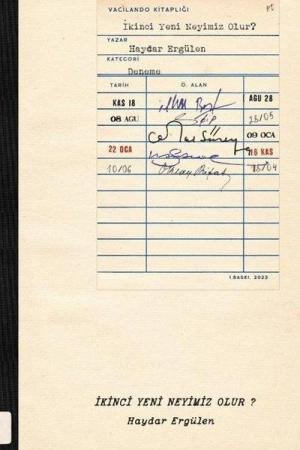 VACILANDO KİTAPLIĞI
İkinci Yeni Neyimiz Olur?
YAZAR
Haydar Ergülen
KATEGORİ
Deneme
TARİH Ö. ALAN
KAS 18 İlhan Berk AĞU 28
08 AĞU 25/05
Cemal Süreya 09 OCA
22 OCA 16 KAS
10/06 Oktay Rifat 15/04
1.BASKI, 2023
İKİNCİ YENİ NEYİMİZ OLUR ?
Haydar Ergülen